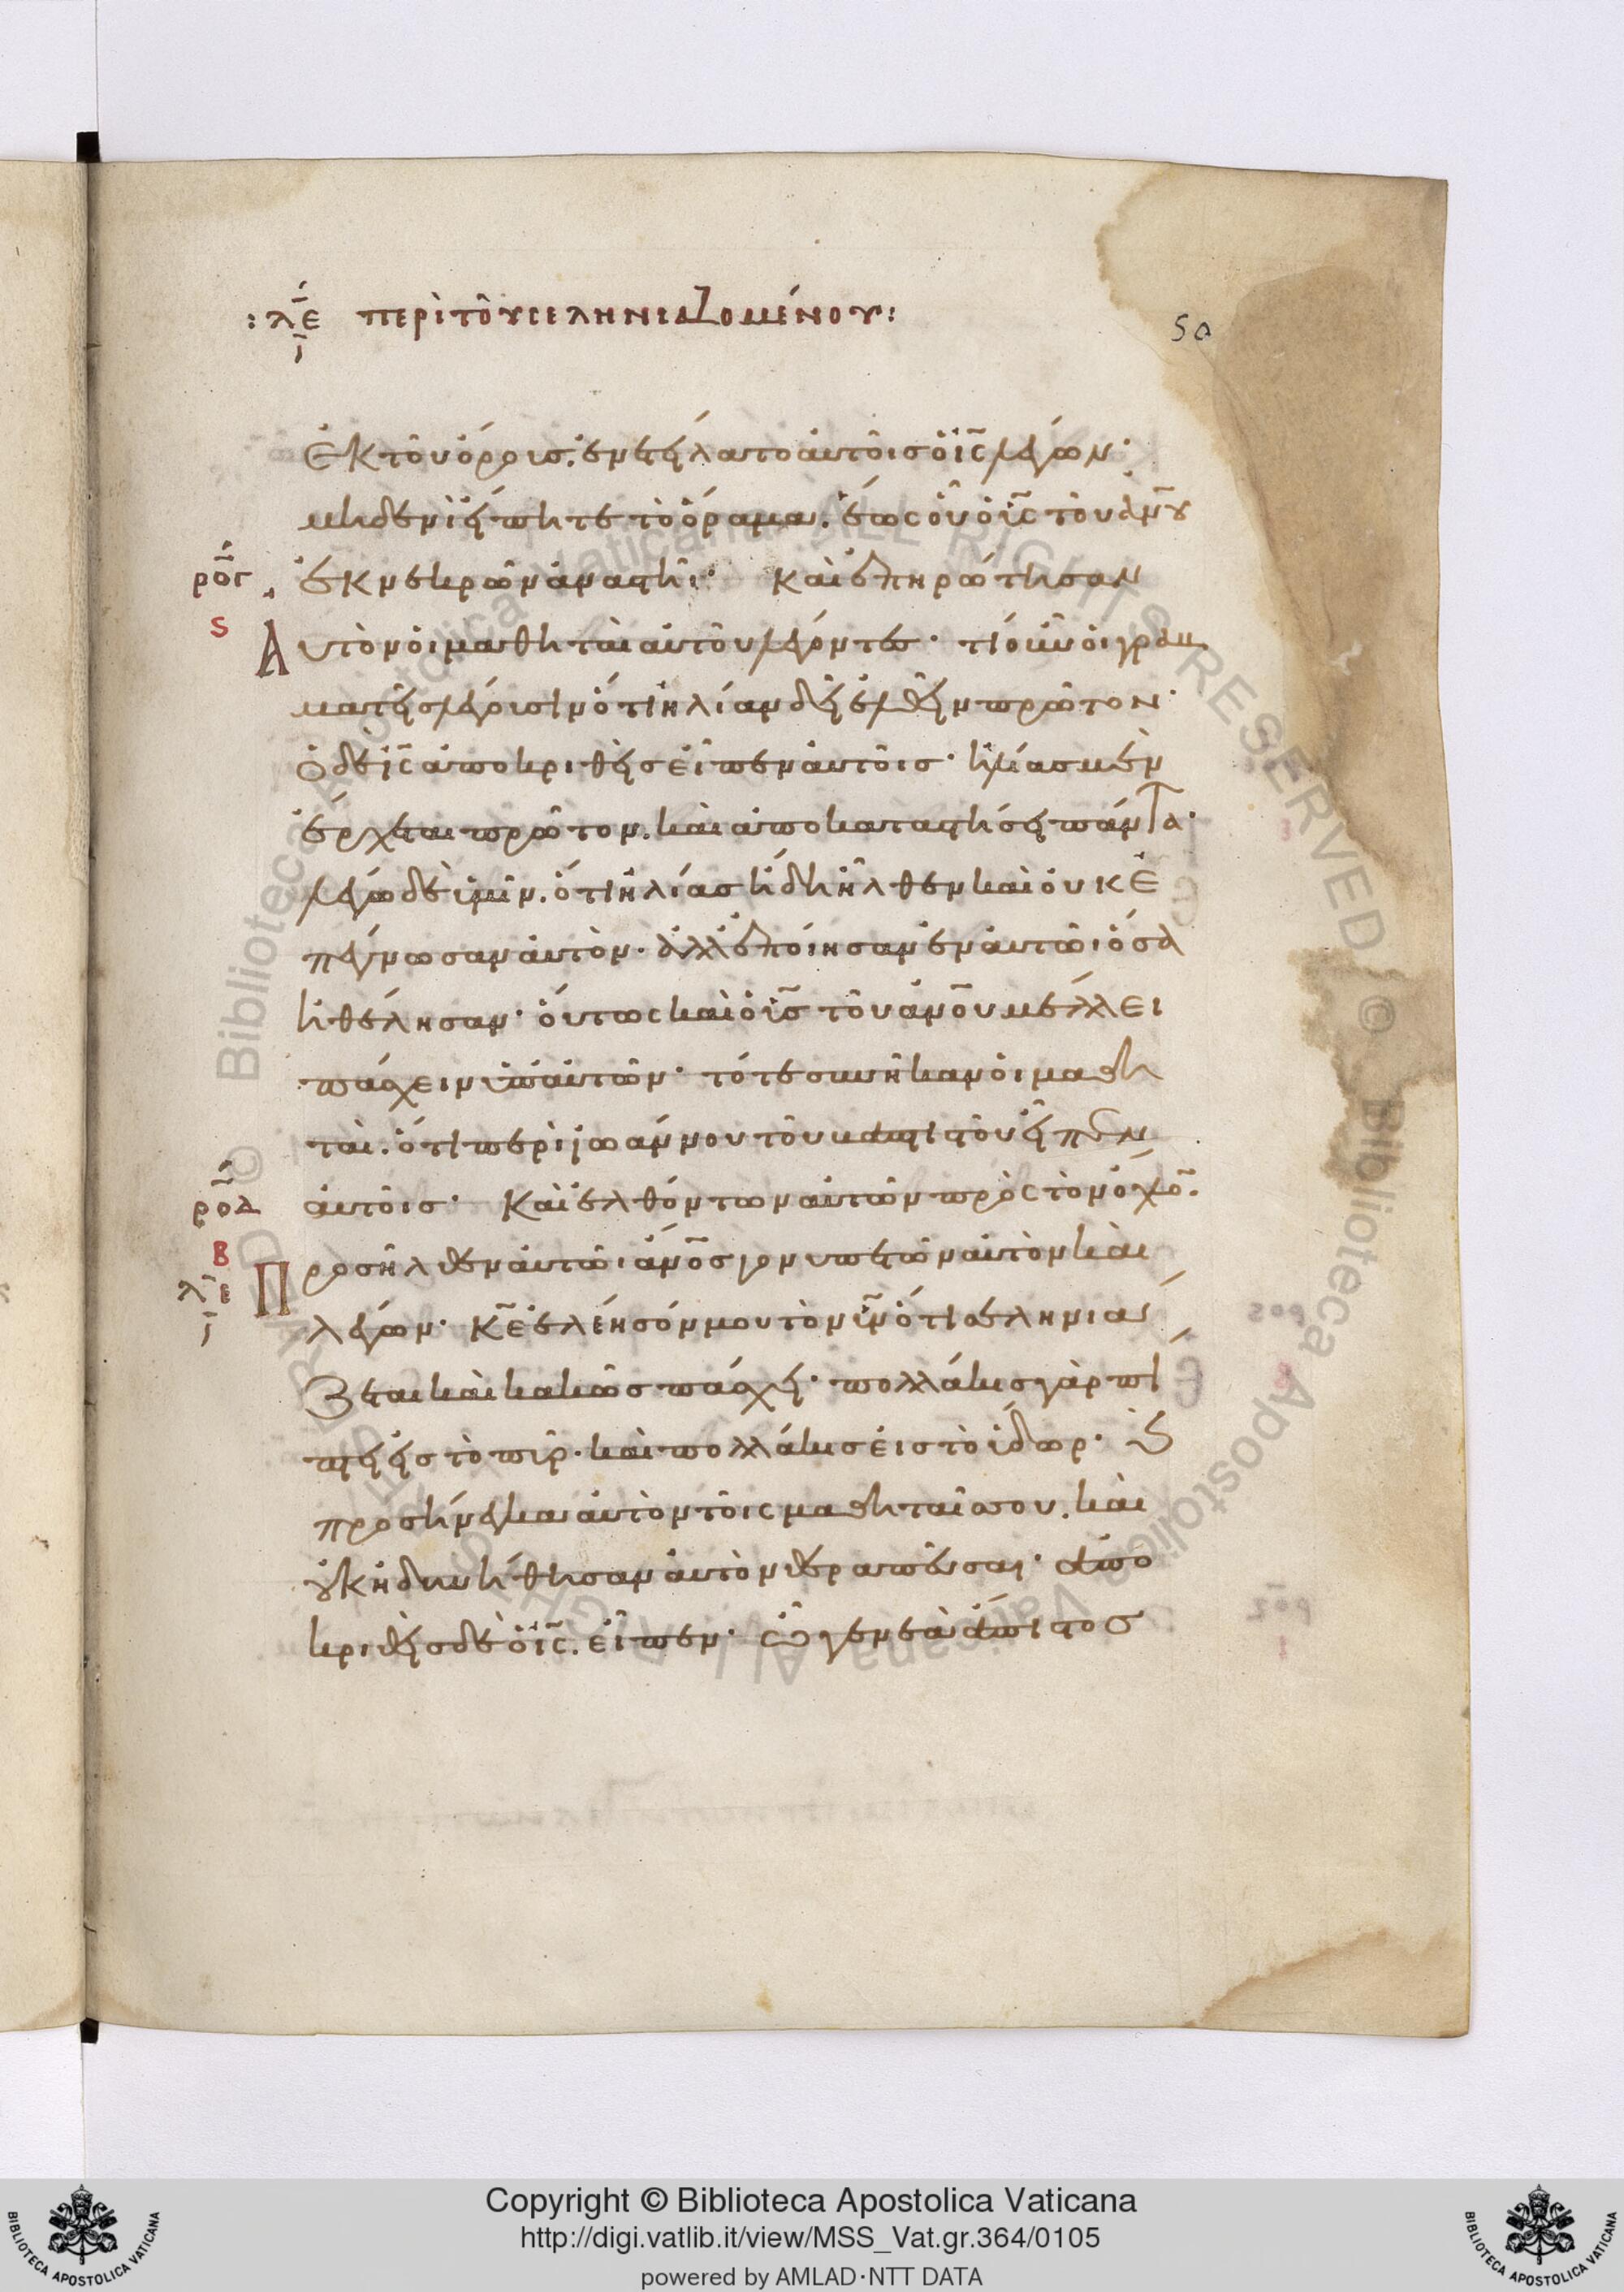 : λε περὶ τοῦ σεληνιαζομένου :
ι
50
ἐκ τοῦ ὄρους. ἐνετείλατο αὐτοῖς ὁ ις λέγων·
μηδενὶ εἴπητε τὸ ὅραμα. ἕως οὗ ὁ υς τοῦ ανου
ρογ ἐκ νεκρῶν ἀναστῆι· Καὶ ἐπηρώτησαν
ς
Αὐτὸν οἱ μαθηταὶ αὐτοῦ λέγοντες· τί οὖν οἱ γραμ
ματεῖς λέγουσιν ὅτι ἠλίαν δεῖ ἐλθεῖν πρῶτον·
ὁ δὲ ις ἀποκριθεὶς εἶπεν αὐτοῖς· ἠλίας μὲν
ἔρχεται πρῶτον. καὶ ἀποκαταστήσει πάντα·
λέγω δὲ ὑμῖν. ὅτι ἠλίας ἤδη ἦλθεν καὶ οὐκ ἐ
πέγνωσαν αὐτὸν· ἀλλ' ἐποίησαν ἐν αὐτῶι ὅσα
ἠθέλησαν· οὕτως καὶ ὁ υς τοῦ ανου μέλλει
πάσχειν ὑπ' αὐτῶν· τότε συνῆκαν οἱ μαθη
ταὶ. ὅτι περὶ ἰωάννου τοῦ βαπτιστοῦ εἶπεν
ροδ αὐτοῖς· Καὶ ἐλθόντων αὐτῶν πρὸς τὸν ὄχλο.
β
λε Προσῆλθεν αὐτῶι ανος γονυπετῶν αὐτὸν καὶ
ι λέγων· κε ἐλέησόν μου τὸν υν ὅτι σεληνιά
ζεται καὶ κακῶς πάσχει· πολλάκις γὰρ πί
πτει εἰς τὸ πῦρ. καὶ πολλάκις εἰς τὸ ὕδωρ· ϗ
προσήνεγκα αὐτὸν τοῖς μαθηταῖς σου. καὶ
οὐκ ἠδυνήθησαν αὐτὸν θεραπεῦσαι· ἀπο
κριθεὶς δὲ ὁ ις. εἶπεν· ὦ γενεὰ ἄπιστος
Copyright © Biblioteca Apostolica Vaticana
http://digi.vatlib.it/view/MSS_Vat.gr.364/0105
powered by AMLAD·NTT DATA
BIBLIOTECA APOSTOLICA VATICANA
BIBLIOTECA APOSTOLICA VATICANA